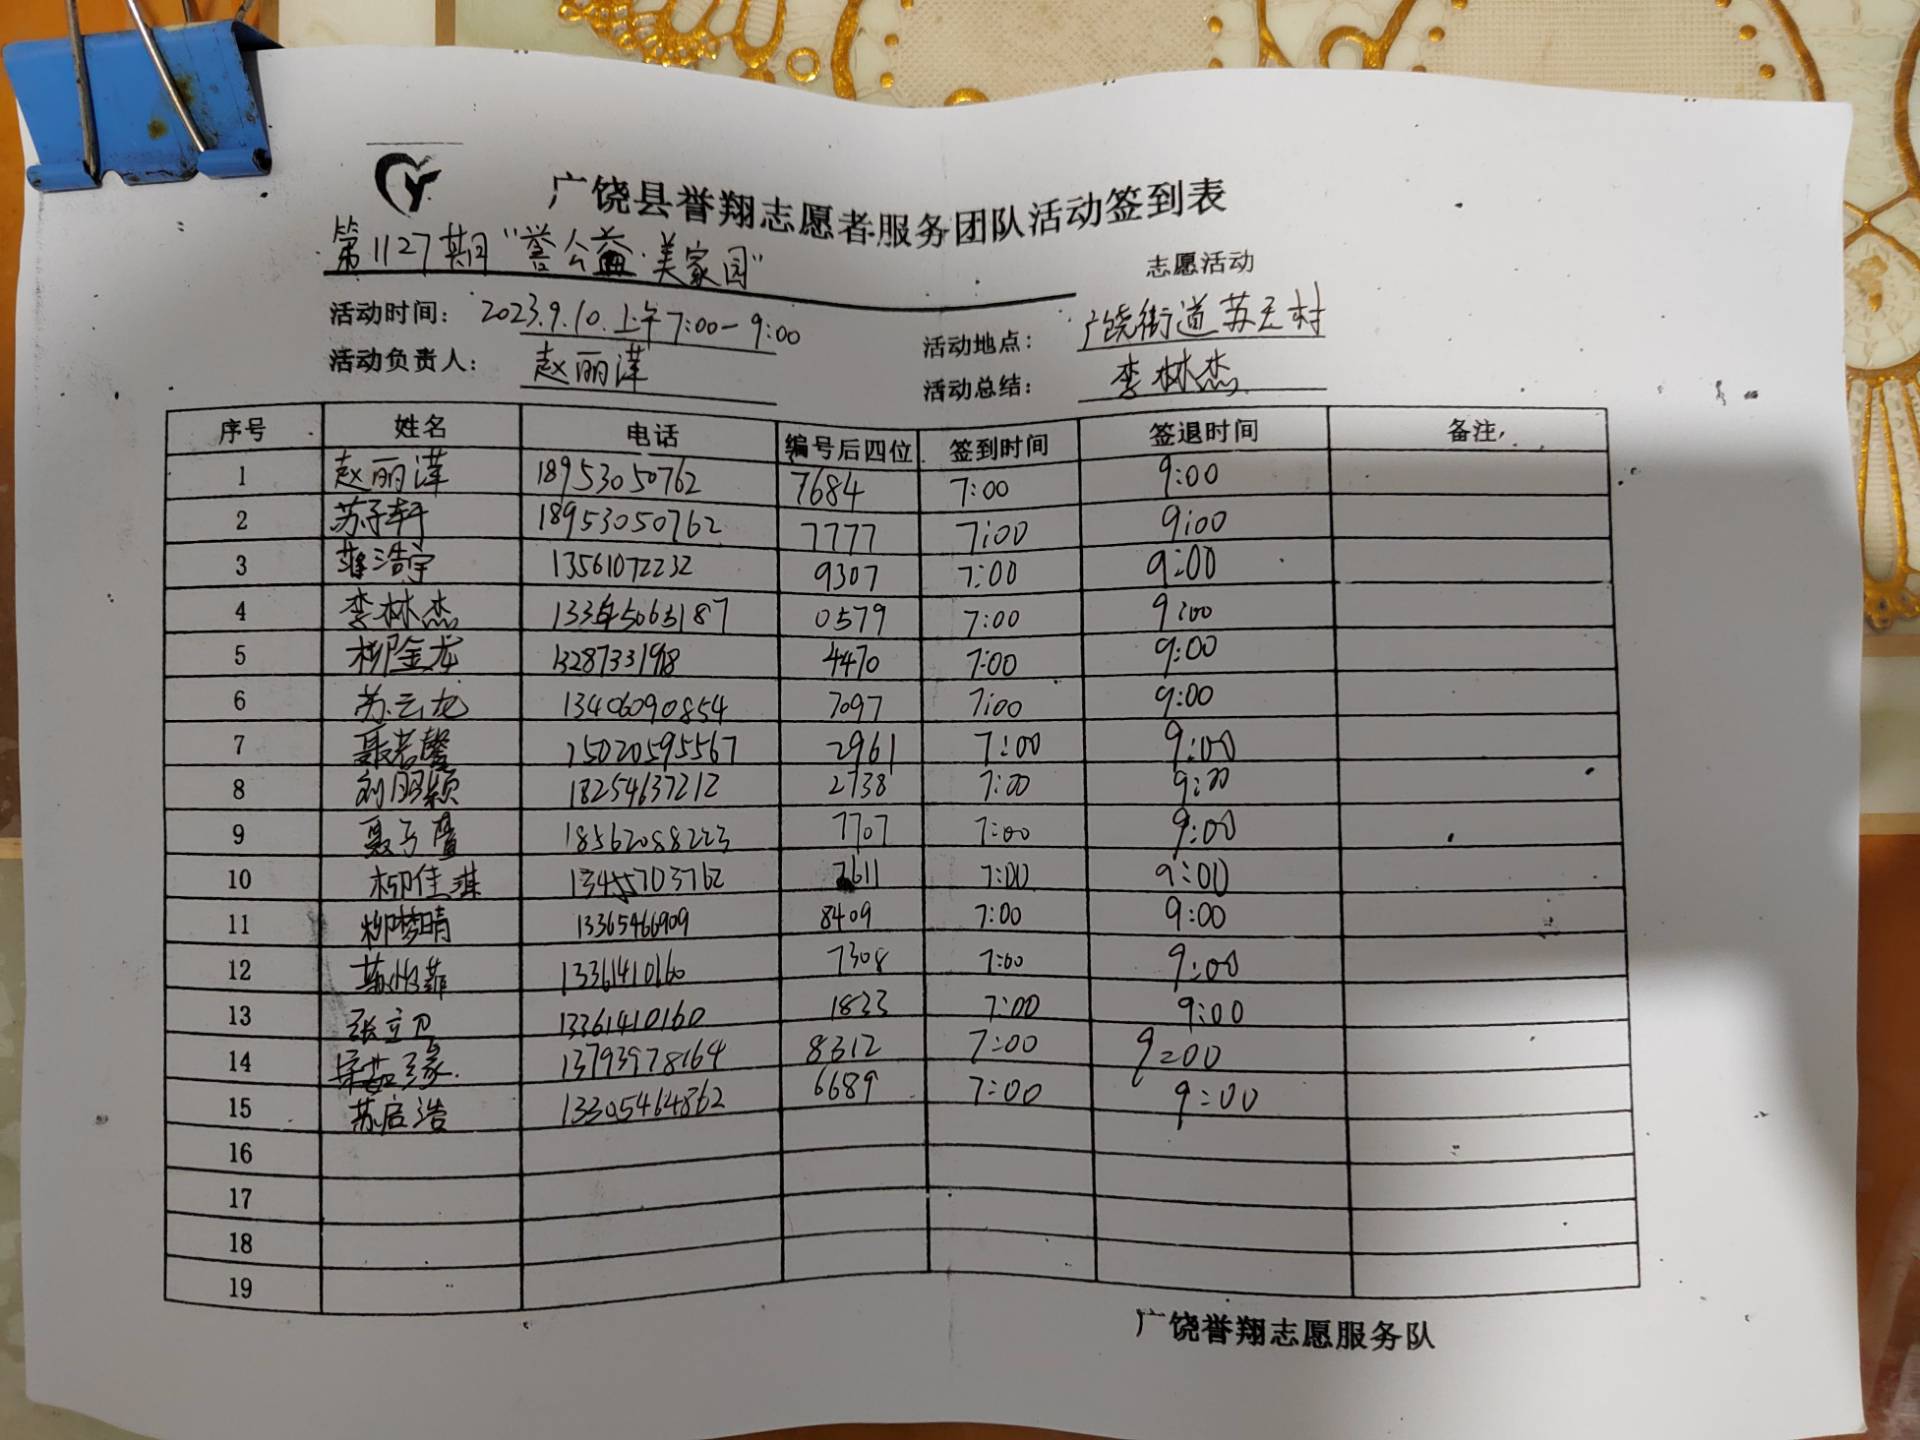 广饶县誉翔志愿者服务团队活动签到表
第1127期"誉公益·美家园" 志愿活动
活动时间: 2023.9.10.上午7:00-9:00 活动地点: 广饶街道苏王村
活动负责人: 赵丽萍 活动总结: 李林杰
序号 姓名 电话 编号后四位 签到时间 签退时间 备注
1 赵丽萍 18953050762 7684 7:00 9:00
2 苏子轩 18953050762 7777 7:00 9:00
3 浩宇 13561072232 9307 7:00 9:00
4 李林杰 0579 7:00 9:00
5 柳金龙 4470 7:00 9:00
6 苏云龙 13406090854 7097 7:00 9:00
7 聂若馨 15020595567 2961 7:00 9:00
8 刘朋颖 18254637212 2738 7:00 9:00
9 聂子 18562088223 7707 7:00 9:00
10 柳佳琪 13455703762 7611 7:00 9:00
11 柳梦晴 13365466909 8409 7:00 9:00
12 苏 13361410160 7308 7:00 9:00
13 张立 13361410160 1823 7:00 9:00
14 缘 13793978164 8312 7:00 9:00
15 苏启浩 13305464862 6689 7:00 9:00
16
17
18
19
广饶誉翔志愿服务队